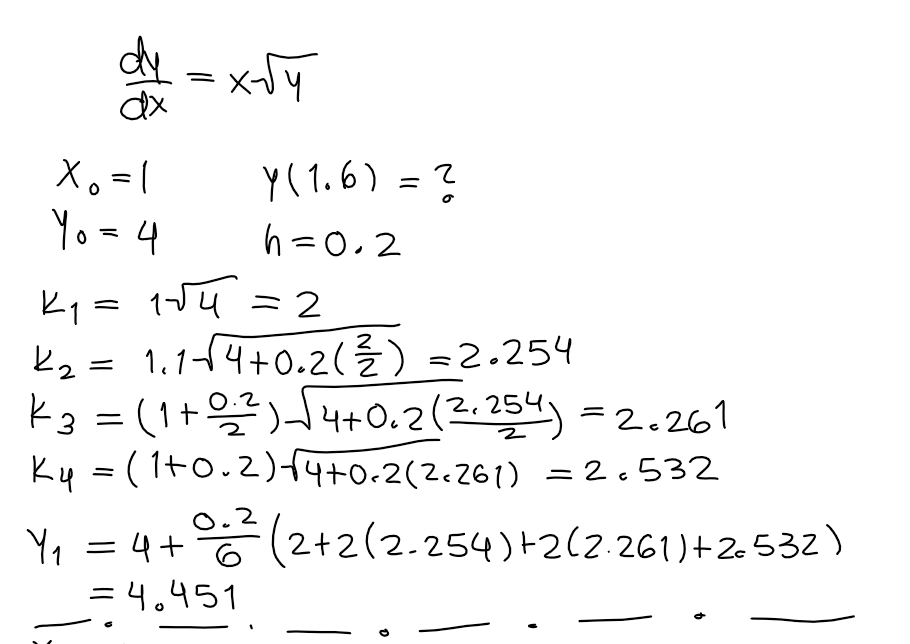 dy/dx = x√y
X₀ = 1 y(1.6) = ?
Y₀ = 4 h = 0.2
K₁ = 1√4 = 2
K₂ = 1.1√(4+0.2(2/2)) = 2.254
K₃ = (1+0.2/2)√(4+0.2(2.254/2)) = 2.261
K₄ = (1+0.2)√(4+0.2(2.261)) = 2.532
Y₁ = 4 + 0.2/6 (2+2(2.254)+2(2.261)+2.532)
= 4.451